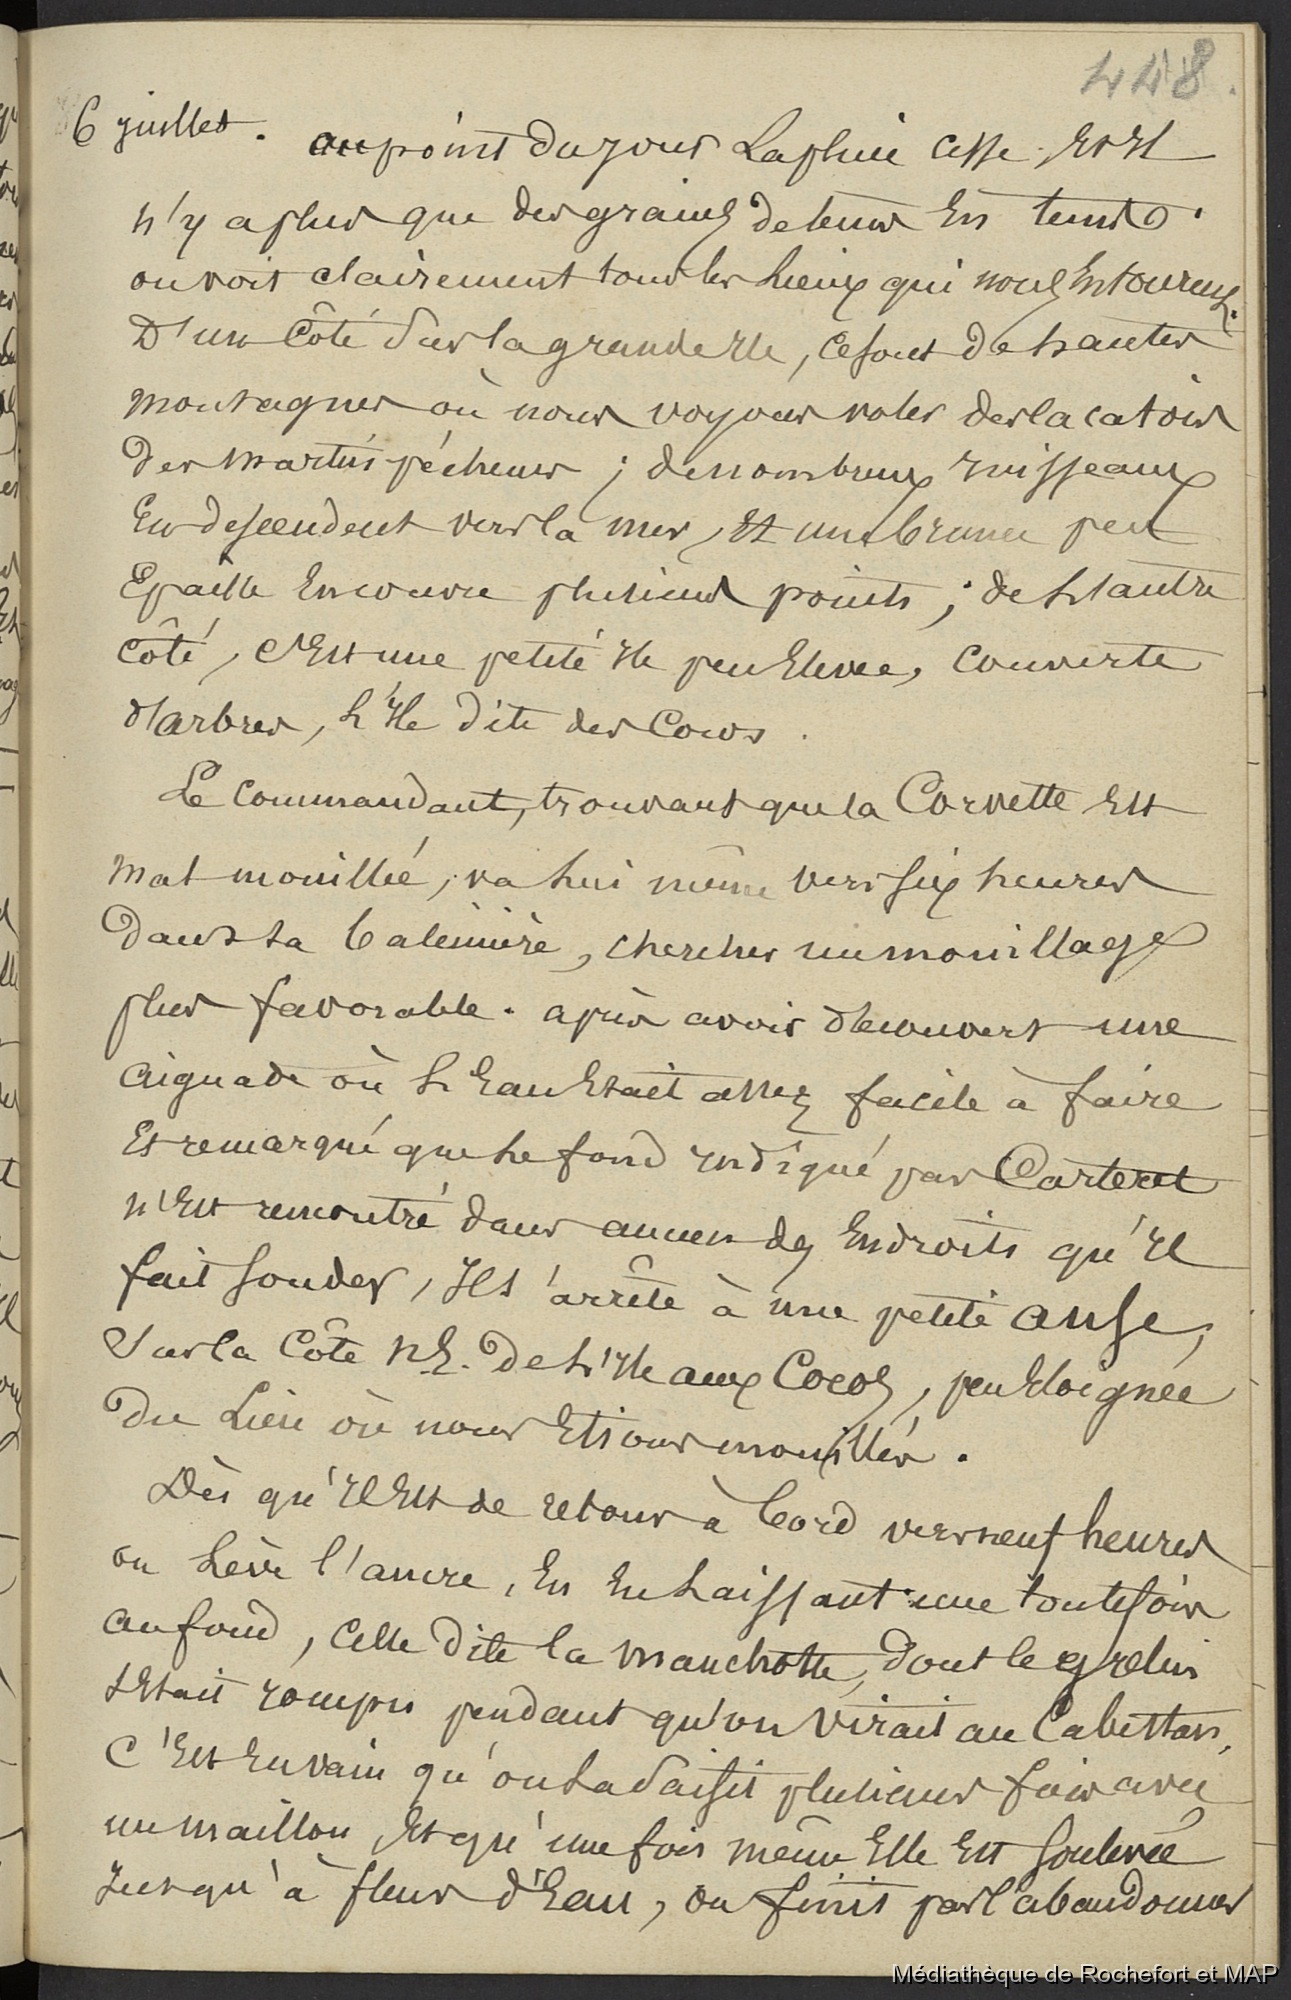 448.
6 juillet. au point du jour la pluie cesse. Et Il
n'y a plus que des grains de tems En tems.
on voit clairement tous les lieux qui nous Entourent.
D'un Côté sur la grande Ile, ce sont de hautes
montagnes où nous voyons voler des lacatois
des martins pécheurs ; de nombreux ruisseaux
En descendent vers la mer, Et une brume peu
Epaisse En couvre plusieurs points ; de l'autre
Côté, c'Est une petite Ile peu Elevée, couverte
d'arbres, l'Ile dite des Cocos.
Le Commandant, trouvant que la Corvette Est
mal mouillée, va lui même vers six heures
dans sa baleinière, chercher un mouillage
plus favorable. après avoir découvert une
aiguade où l'Eau Etait assez facile à faire
Et remarqué que le fond Indiqué par Carteret
n'Est rencontré dans aucun des Endroits qu'Il
fait sonder, Il s'arrête à une petite anse,
sur la Côte NE. de l'Ile aux Cocos, peu Eloignée
du Lieu où nous Etions mouillés.
Dès qu'Il Est de retour à bord vers neuf heures
on lève l'ancre, En En laissant une toutefois
au fond, celle dite la manchotte, dont le grelin
s'Etait rompu pendant qu'on virait au Cabestan,
C'Est En vain qu'on la saisit plusieurs fois avec
un maillon, Et qu'une fois même Elle Est soulevée
Jusqu'à fleur d'Eau, on finit par l'abandonner
Médiathèque de Rochefort et MAP